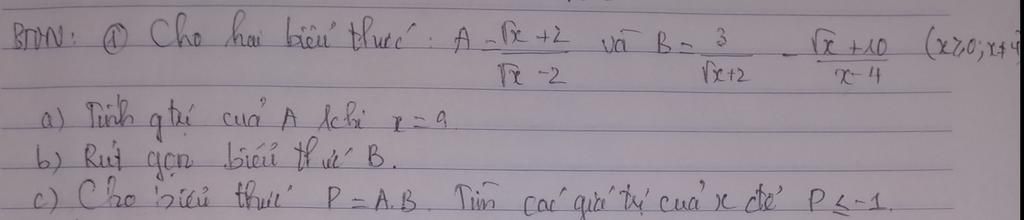 BTVN: ① Cho hai biểu thức: A = (√x + 2)/(√x - 2) và B = 3/(√x + 2) - (√x + 10)/(x - 4) (x ≥ 0; x ≠ 4)
a) Tính g trị của A khi x = 9
b) Rút gọn biểu thức B.
c) Cho biểu thức P = A.B. Tìm các giá trị của x để P ≤ -1.